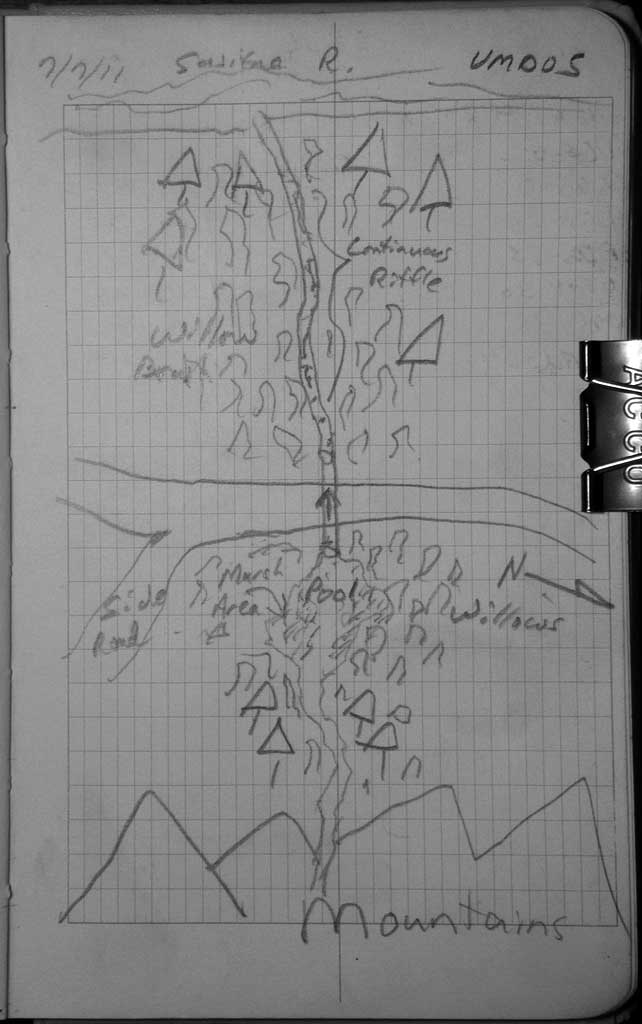 7/7/11 Susitna R. UMD05
Continuous
Riffle
Willow
Brush
ACCO
N
Marsh
Area
Pool
Willows
Side
Road
Mountains